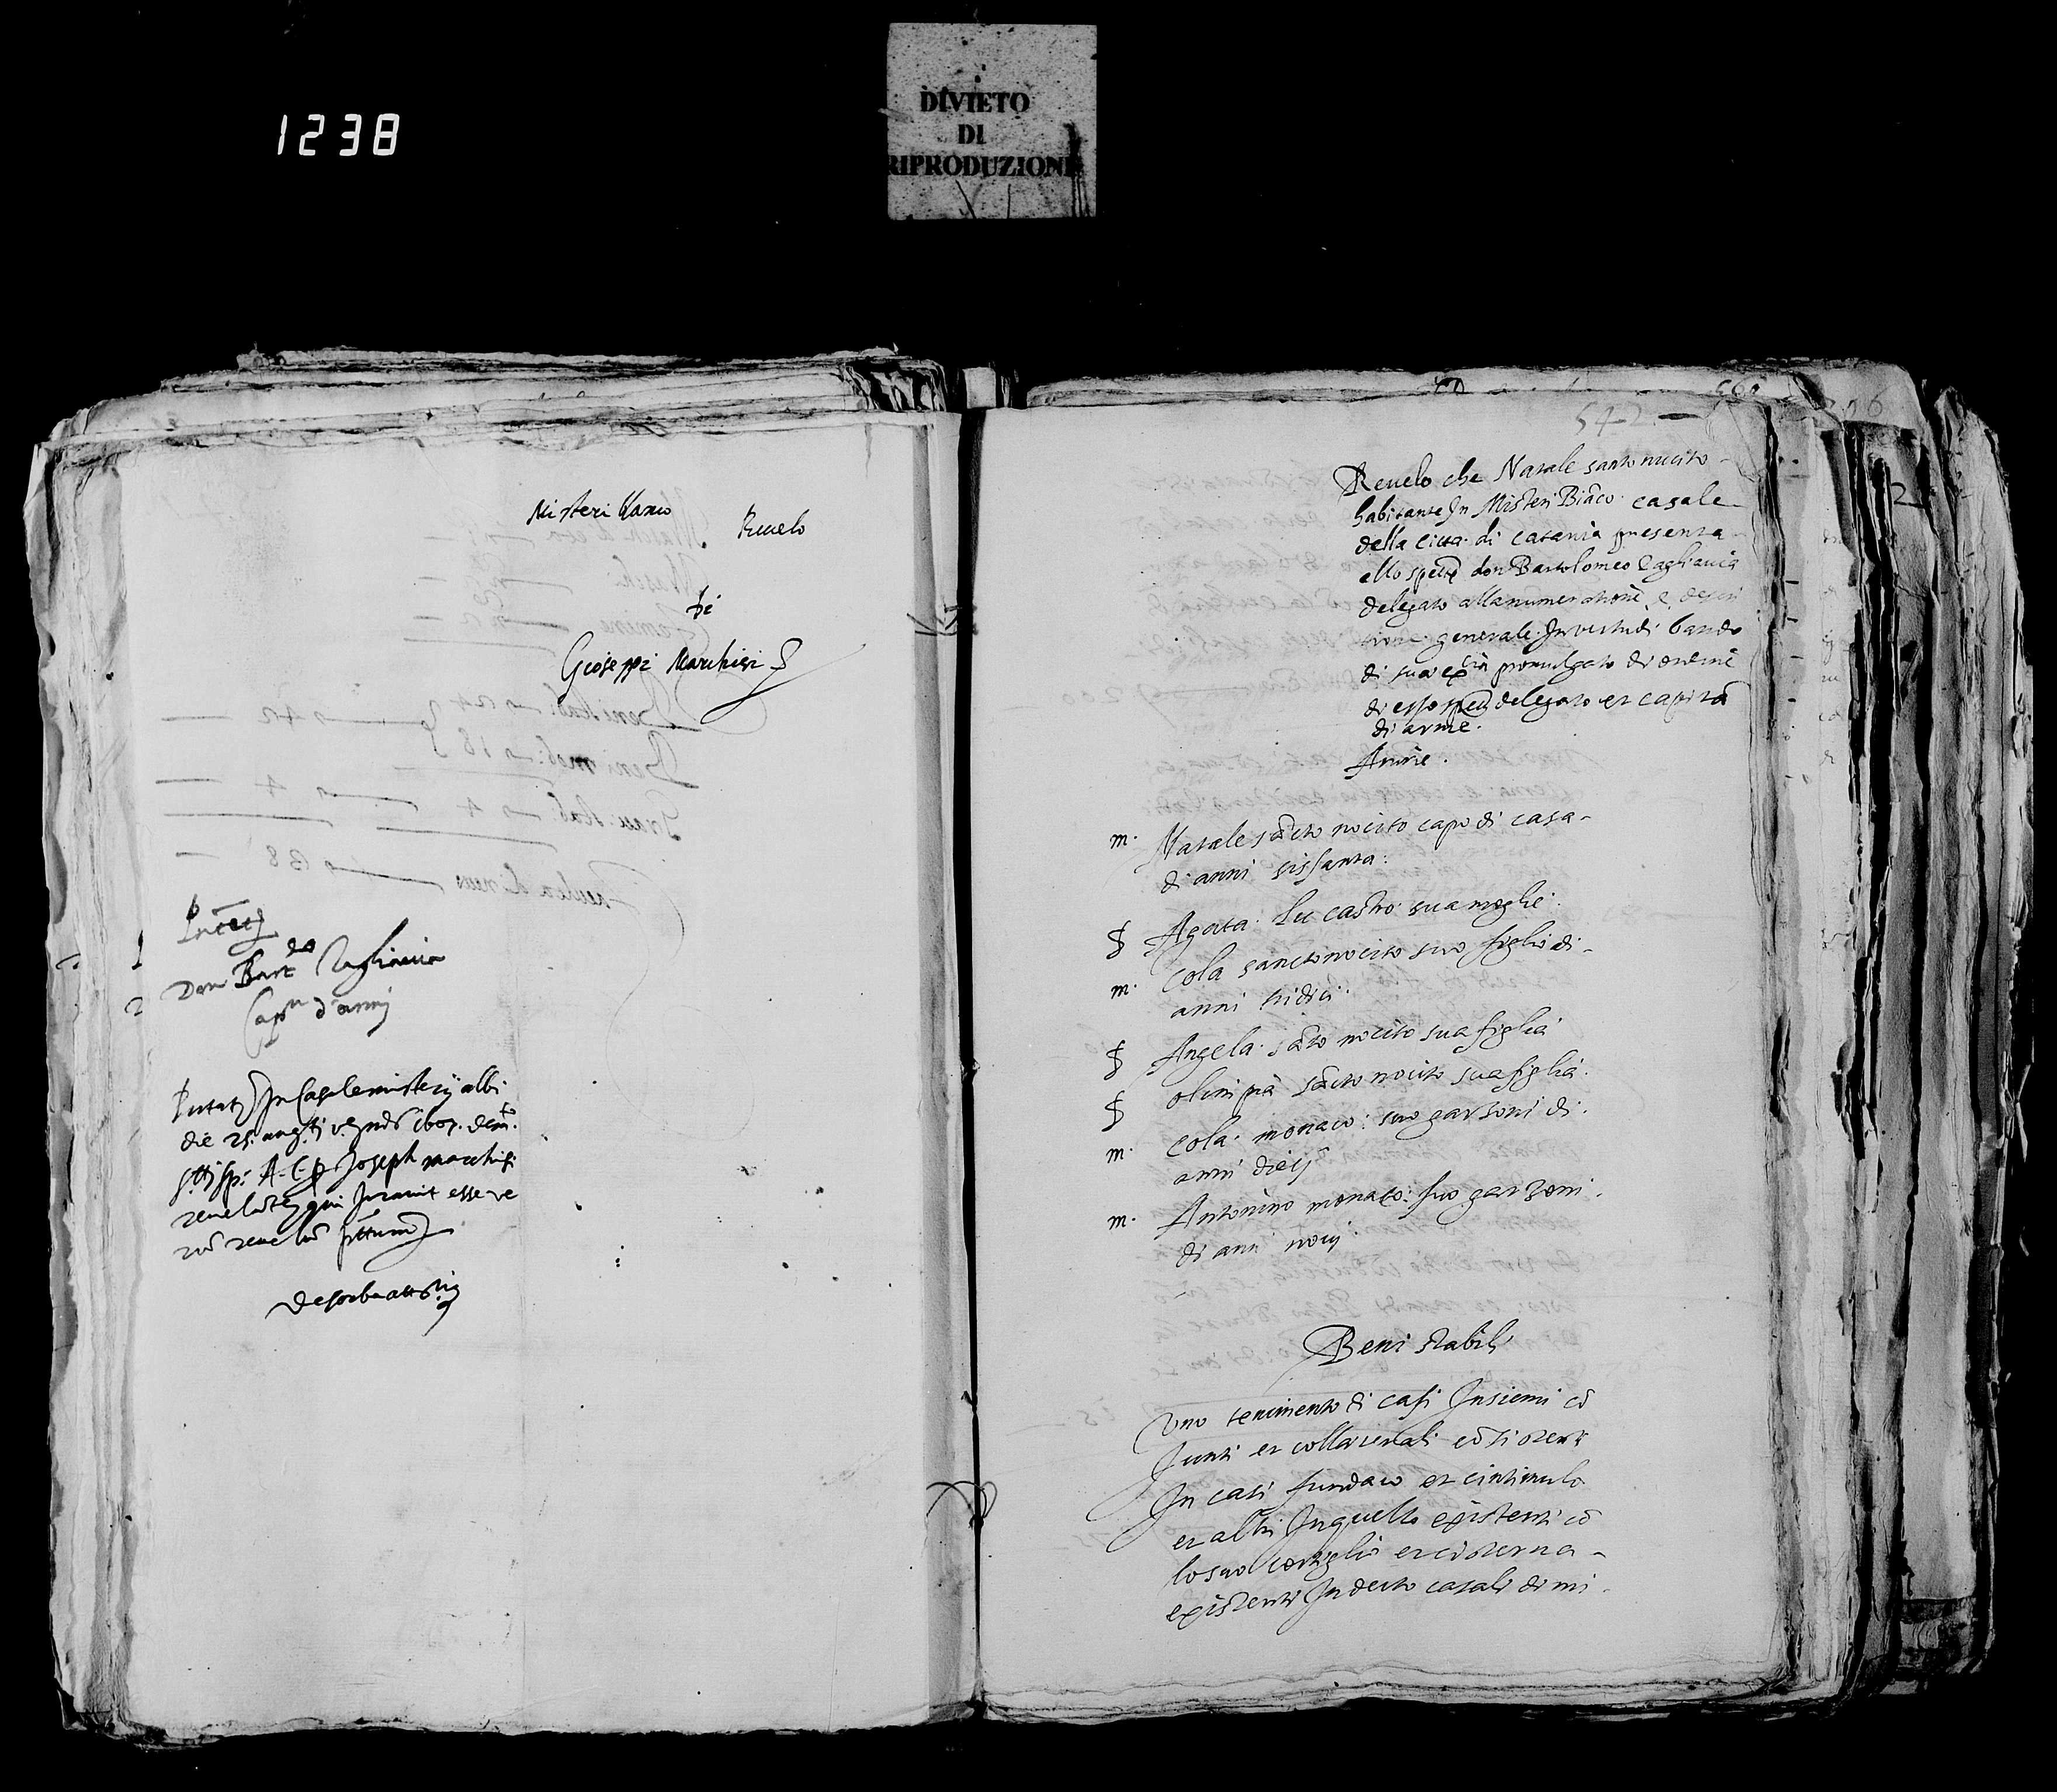 1238
DIVIETO
DI
RIPRODUZIONE
Misteri bianco
Revelo
di
Gioseppi Marchisi
Don Bart Tagliavia
Cap.n d'armi
In casale misterij albi
die 25 aug.ti
Joseph marchisi
qui Juravit esse ve
542
Revelo che Natale santonucito
habitante In Misteri Biāco casale
della citta di catania presenta
allo spett. don Bartolomeo tagliavia
delegato alla numeratione e descri
tione generale In virtu di bando
di sua ex.tia promulgato di ordine
di esso spett. delegato et capitā
di arme.
Anime.
m. Natale sācto nocito capo di casa
di anni sissanta.
f Agata Lu castro sua moglie.
m. Cola sanctonocito suo figlio di
anni tridici.
f Angela sāto nocito sua figlia
f olimpia sācto nocito sua figlia.
m. Cola monaco: suo garzoni di
anni diecj
m. Antonino monaco: suo garzoni
di anni novj.
Beni stabili
Uno tenimento di casi Insiemi cō
Junti et collaterali cōsistenti
In casi fundaco et cintimulo
et altri In quello existenti cō
lo suo cortiglio et cisterna
existenti In decto casali di mi